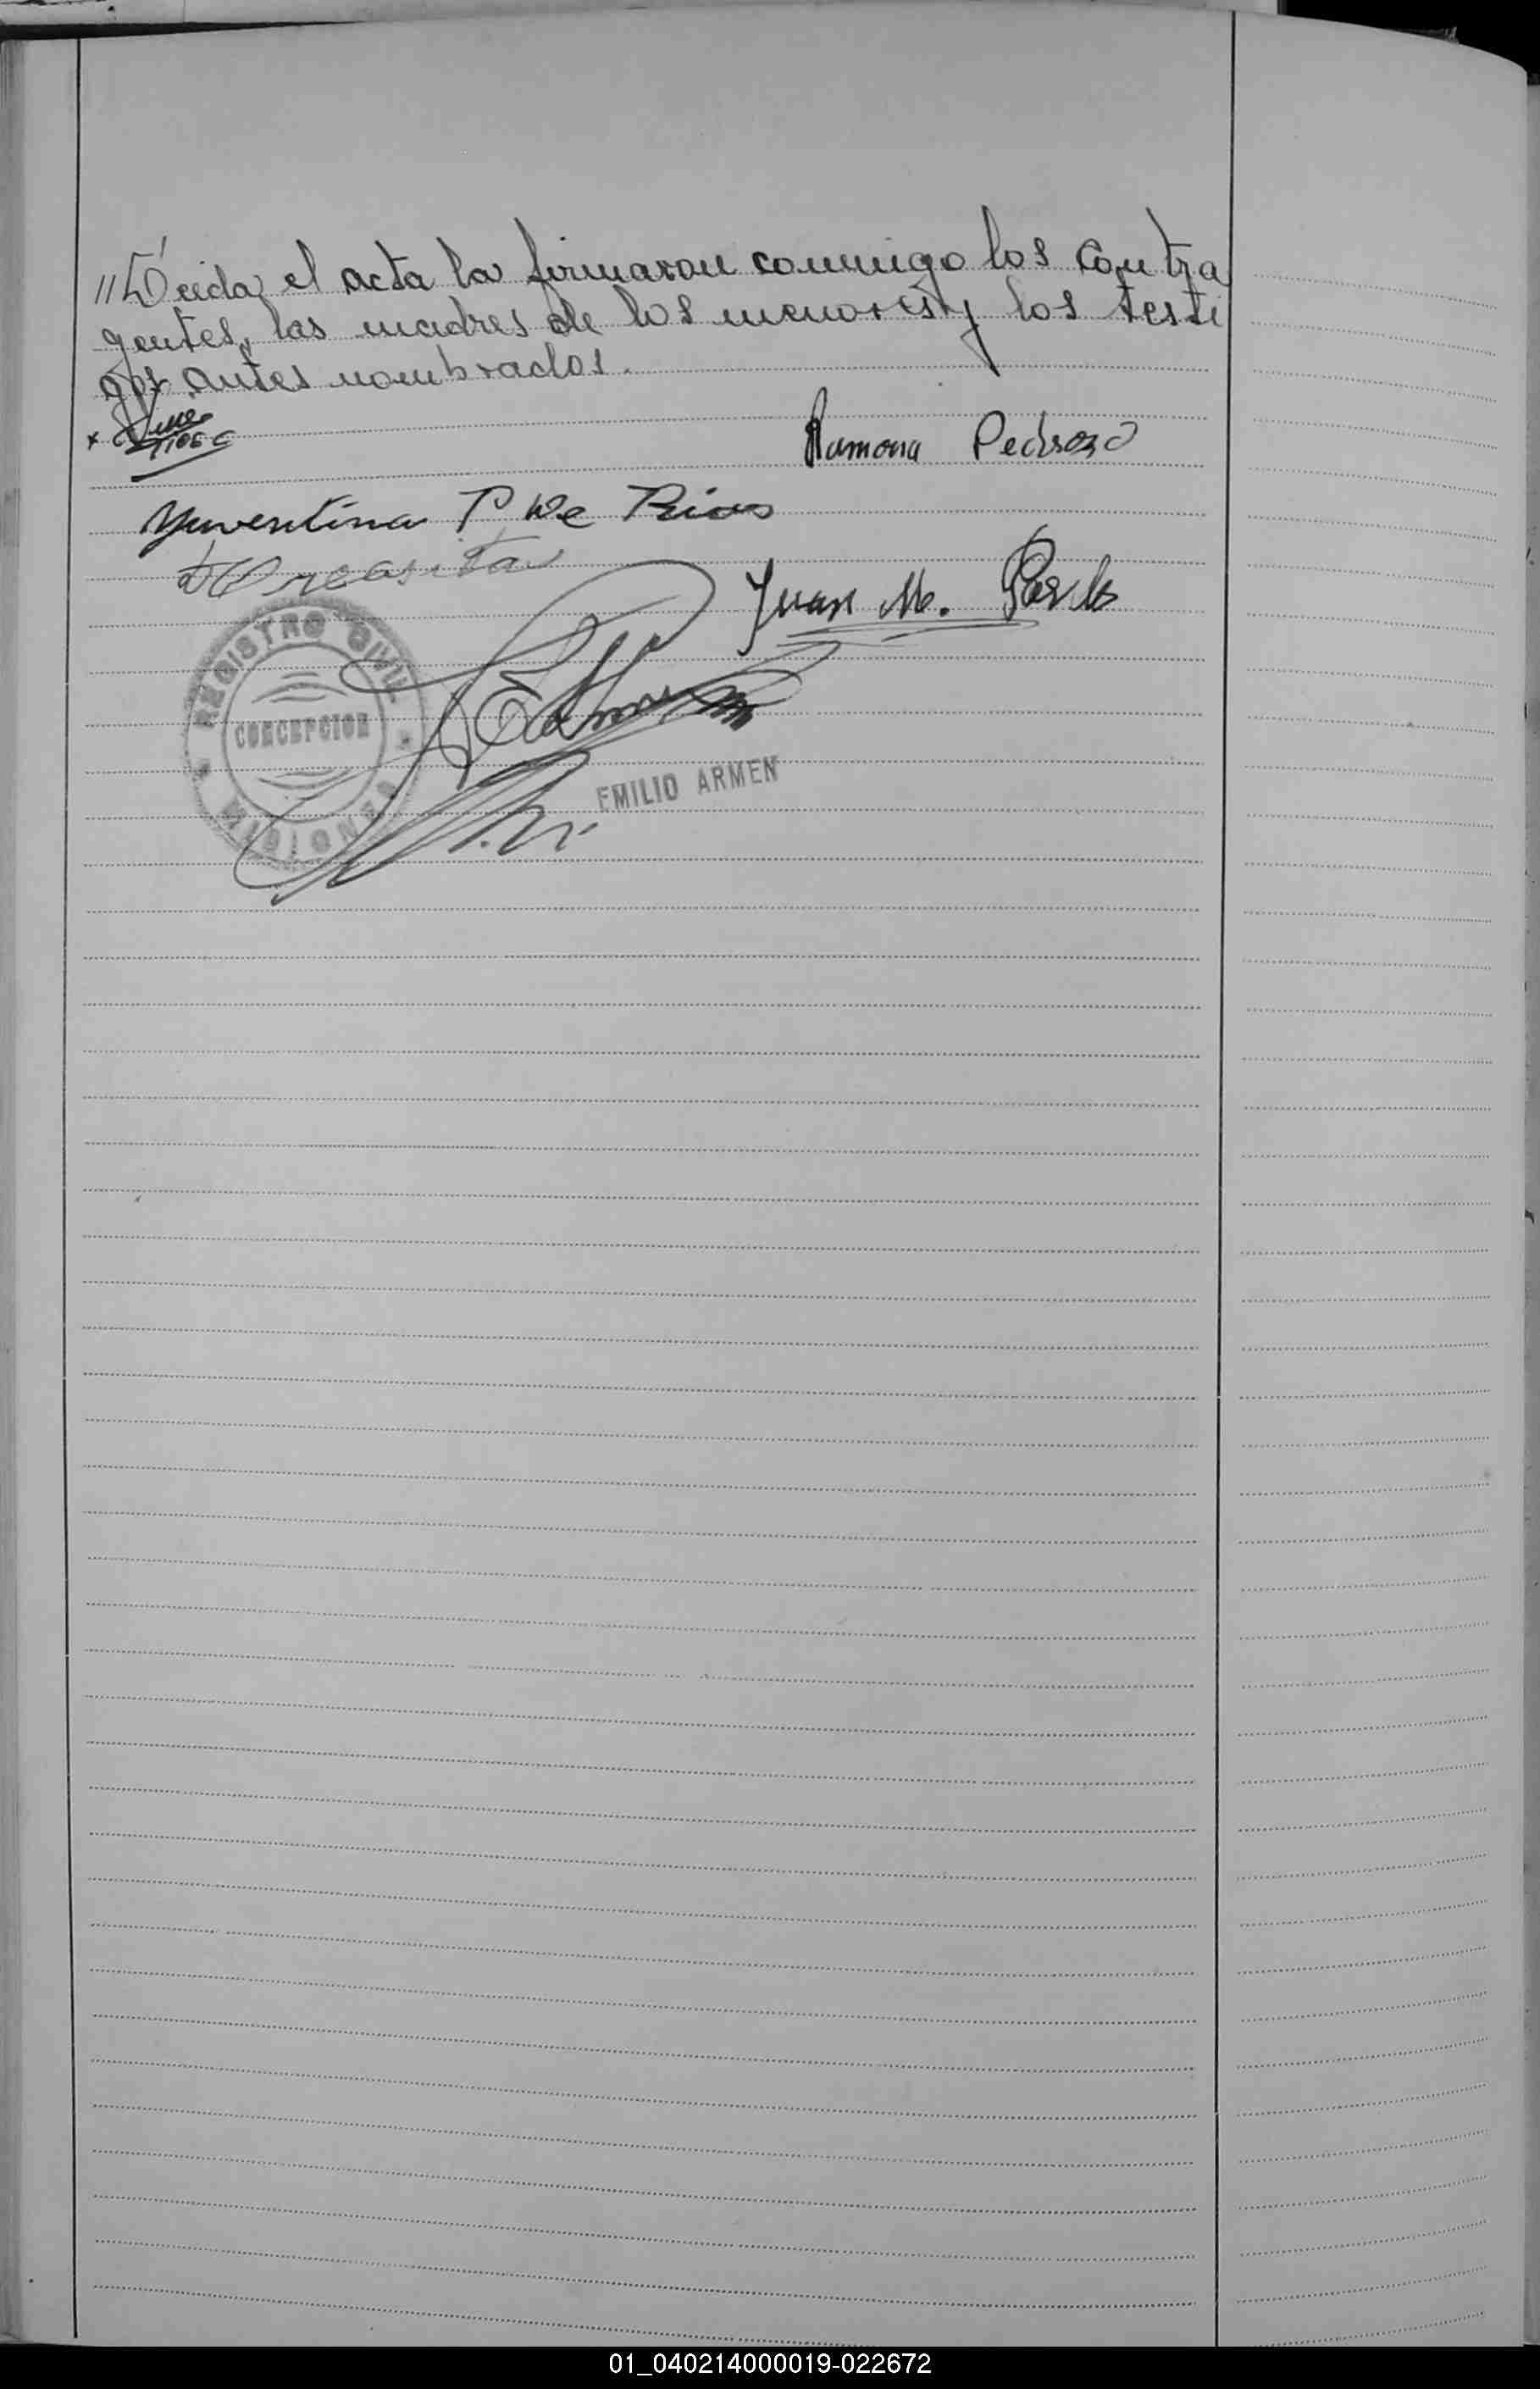 "Leida el acta la firmaron conmigo los contra
yentes, las madres de los menores y los testi
gos antes nombrados.
Ramona Pedrozo
Yuventina P de Rios
Juan M.
REGISTRO CIVIL
CONCEPCION
MISIONES
EMILIO ARMEN
01_040214000019-022672